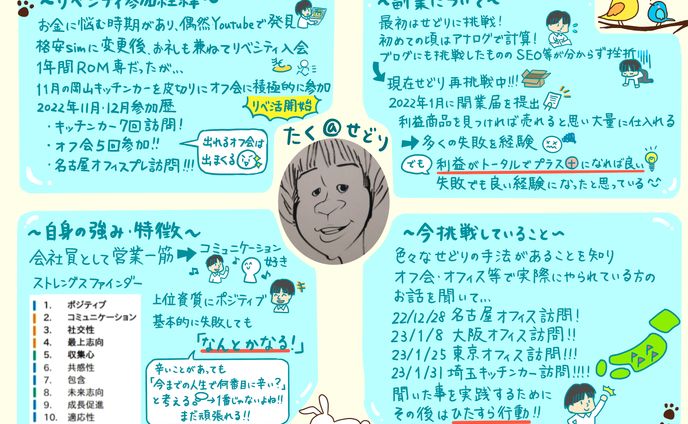 〜リベシティ参加経緯〜
お金に悩む時期があり、偶然Youtubeで発見
格安simに変更後、お礼も兼ねてリベシティ入会
1年間ROM専だったが…
11月の岡山キッチンカーを皮切りにオフ会に積極的に参加
2022年11月・12月参加歴
リベ活開始
・キッチンカー7回訪問!
・オフ会5回参加!!
・名古屋オフィスプレ訪問!!!
出れるオフ会は
出まくる
〜副業について〜
最初はせどりに挑戦!
初めての頃はアナログで計算!
ブログにも挑戦したものの SEO等が分からず挫折
現在せどり 再挑戦中!!!
2022年1月に開業届を提出
利益商品を見つければ売れると思い大量に仕入れる
→多くの失敗を経験
でも
利益がトータルでプラス+になれば良い
失敗でも良い経験になったと思っている
たく@せどり
〜自身の強み・特徴〜
会社員として営業一筋
コミュニケーション
好き
ストレングスファインダー
1. ポジティブ
2. コミュニケーション
3. 社交性
4. 最上志向
5. 収集心
6. 共感性
7. 包含
8. 未来志向
9. 成長促進
10. 適応性
上位資質にポジティブ
基本的に失敗しても
「なんとかなる!」
辛いことがあっても
「今までの人生で何番目に辛い?」
と考える→1番じゃないよね!!
まだ頑張れる!!
〜今挑戦していること〜
色々なせどりの手法があることを知り
オフ会・オフィス等で実際にやられている方の
お話を聞いて…
22/12/28 名古屋オフィス訪問!
23/1/8 大阪オフィス訪問!!
23/1/25 東京オフィス訪問!!!
23/1/31 埼玉キッチンカー訪問!!!!
聞いた事を実践するために
その後はひたすら行動!!